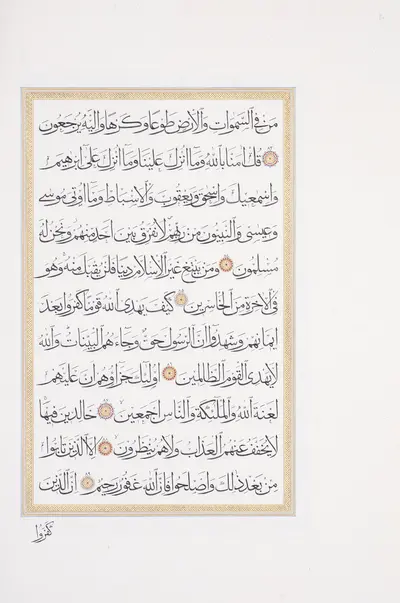 من في السموات والأرض طوعا وكرها واليه يرجعون
قل امنا بالله وما انزل علينا وما انزل على ابرهيم
واسمعيل واسحق ويعقوب والاسباط وما اوتى موسى
وعيسى والنبيون من ربهم لا نفرق بين احد منهم ونحن له
مسلمون ومن يبتغ غير الاسلام دينا فلن يقبل منه وهو
في الاخرة من الخاسرين كيف يهدى الله قوما كفروا بعد
ايمانهم وشهدوا ان الرسول حق وجاءهم البينات والله
لا يهدى القوم الظالمين اولئك جزاؤهم ان عليهم
لعنة الله والملئكة والناس اجمعين خالدين فيها
لا يخفف عنهم العذاب ولا هم ينظرون الا الذين تابوا
من بعد ذلك واصلحوا فان الله غفور رحيم ان الذين
كفروا